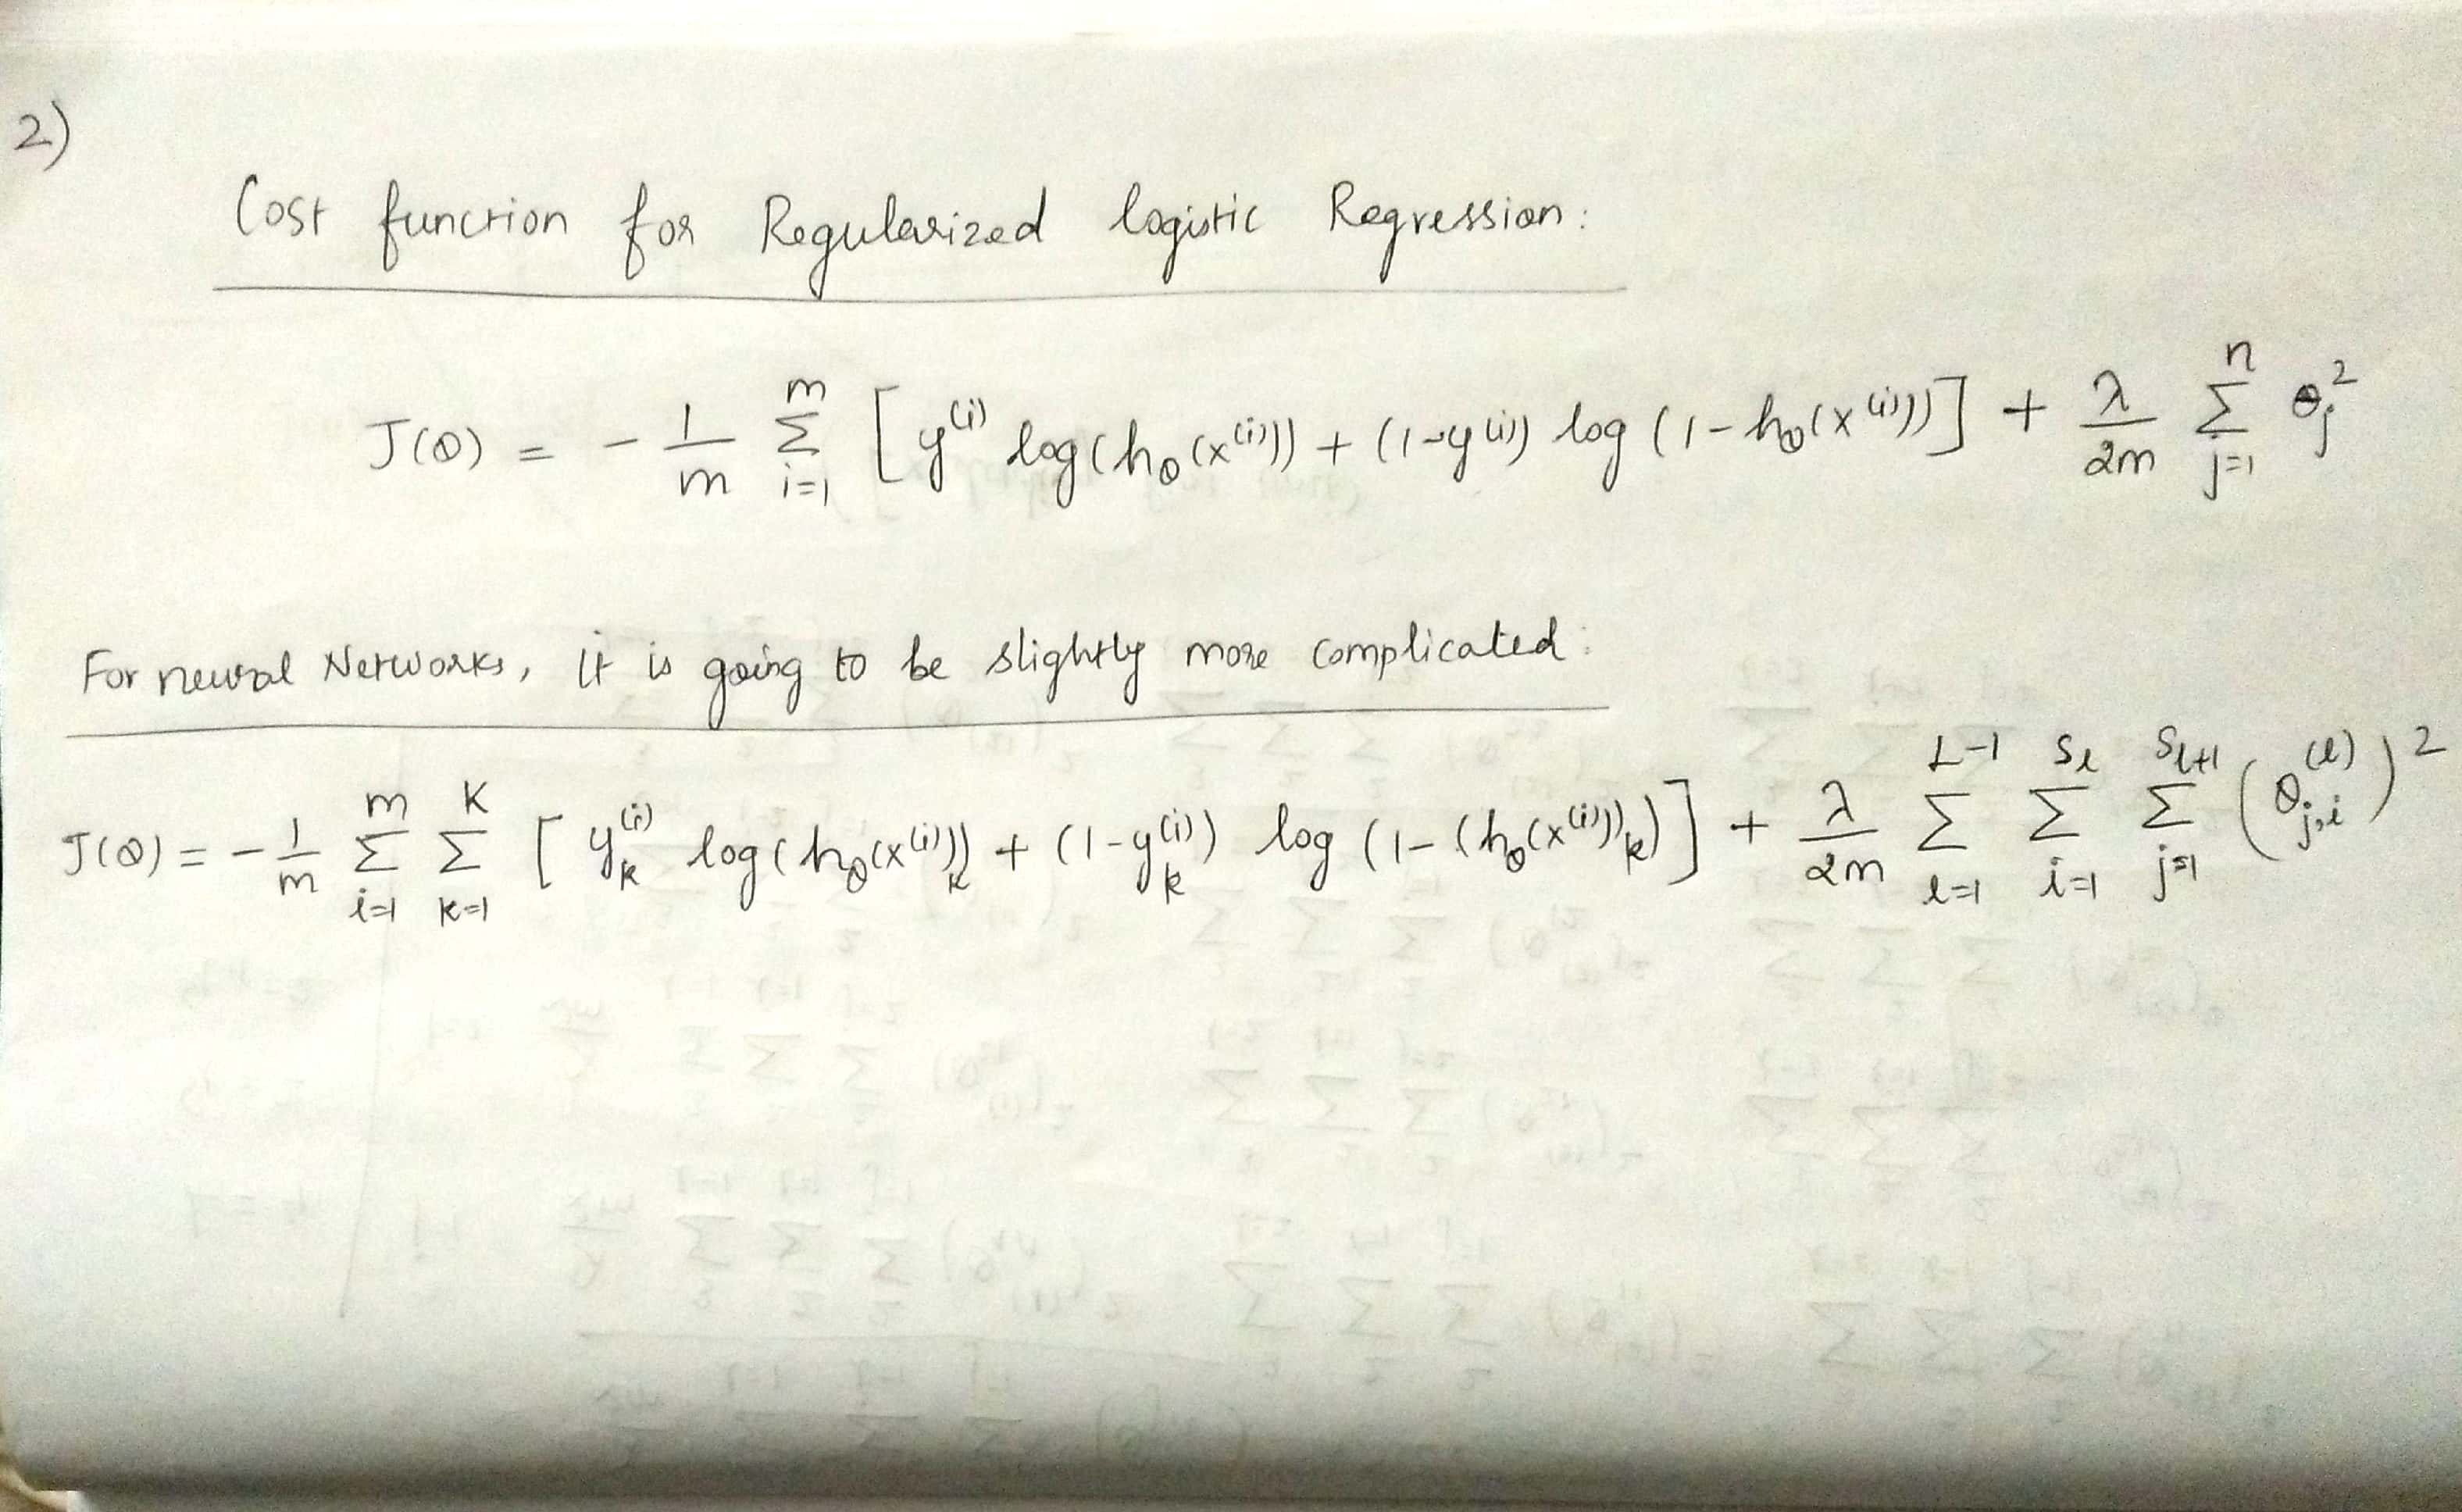 2)
Cost function for Regularized logistic Regression:
J(θ) = - 1/m Σ_{i=1}^{m} [ y^{(i)} log(h_θ(x^{(i)})) + (1-y^{(i)}) log (1-h_θ(x^{(i)}))] + λ/2m Σ_{j=1}^{n} θ_j^2
For neural Networks, it is going to be slightly more complicated:
J(θ) = - 1/m Σ_{i=1}^{m} Σ_{k=1}^{K} [ y_k^{(i)} log(h_θ(x^{(i)}))_k + (1-y_k^{(i)}) log (1-(h_θ(x^{(i)}))_k)] + λ/2m Σ_{l=1}^{L-1} Σ_{i=1}^{s_l} Σ_{j=1}^{s_{l+1}} (θ_{j,i}^{(l)})^2